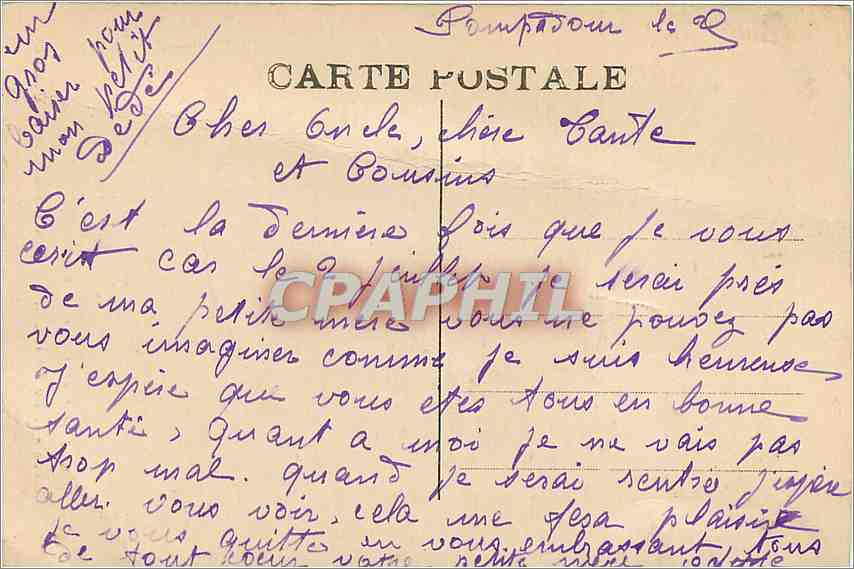 Pompadour le
CARTE POSTALE
un
gros
baiser pour
mon petit
Dédé
Cher Oncle, chère Tante
et Cousins
C'est la dernière fois que je vous
ecrit car le 2 juillet je serai près
de ma petite mère vous ne pouvez pas
vous imaginer comme je suis heureuse
J'espère que vous etes tous en bonne
santé, quant a moi je ne vais pas
trop mal. quand je serai rentré j'espère
aller vous voir, cela me fera plaisir
je vous quitte en vous embrassant tous
de tout coeur votre petite nièce
CPAPHIL